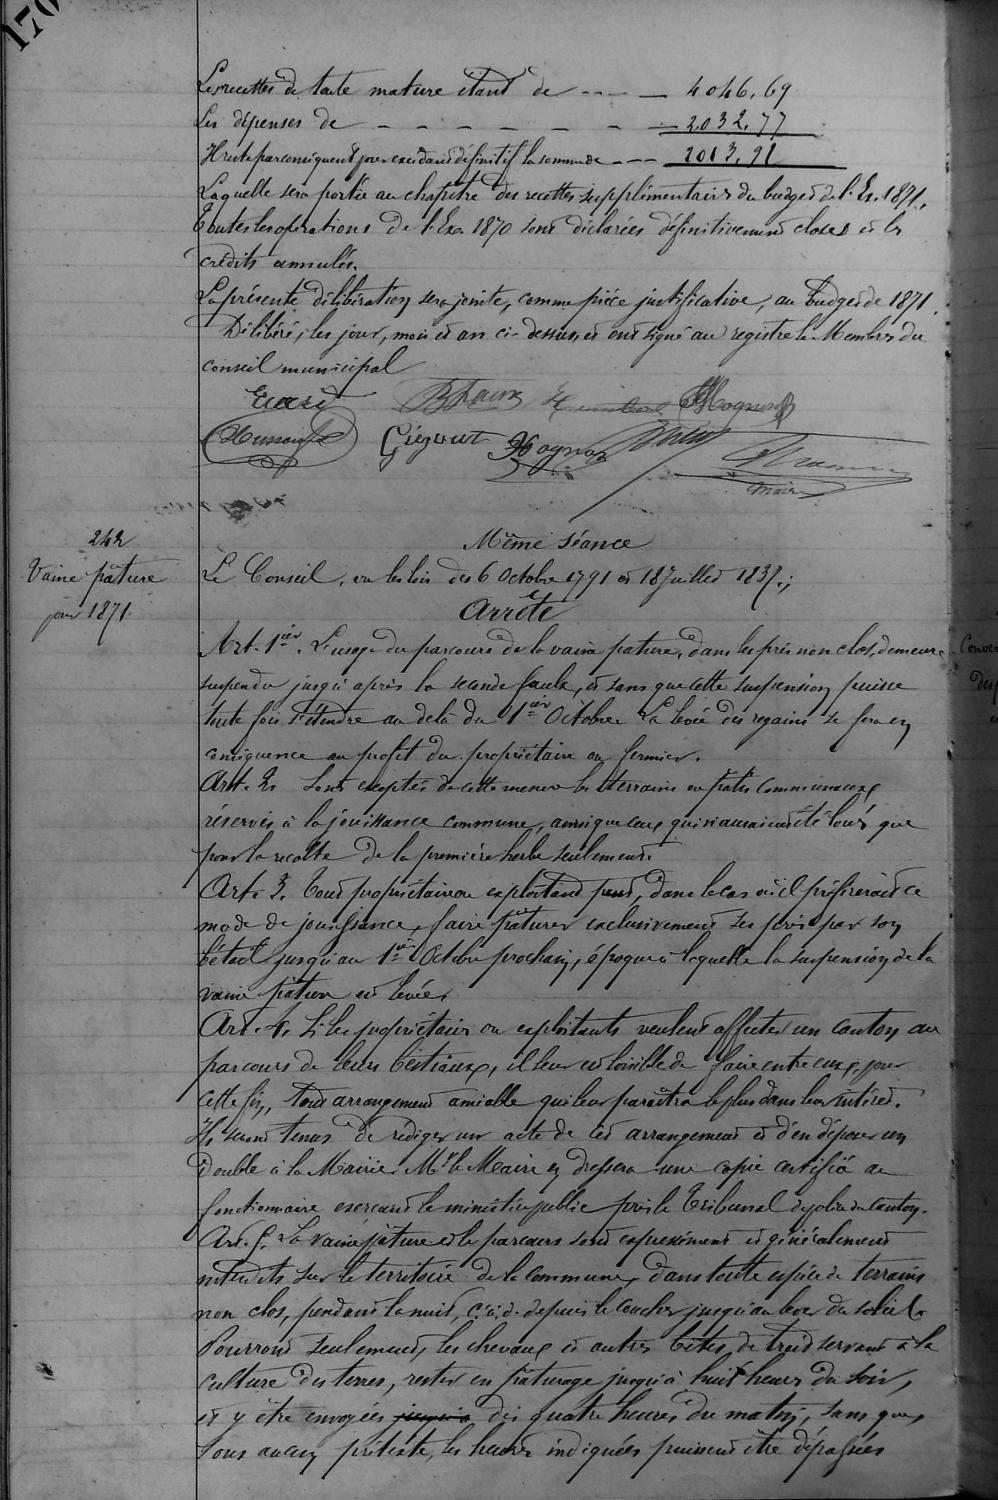 170
Les recettes de toute nature étant de - - - - 4046,69
Les dépenses de - - - - - - - 2032,77
Il reste par conséquent pour excédant définitif la somme de - - - 2013,92
Laquelle sera portée au chapitre des recettes supplémentaires du budget de l'Ex. 1871.
Toutes les opérations de l'Ex. 1870 sont déclarées définitivement closes et les
crédits annulés.
La présente délibération sera jointe, comme pièce justificative, au budget de 1871.
Délibéré, les jour, mois et an ci-dessus, et ont signé au registre les Membres du
conseil municipal
Gigout Hognon
maire
Même séance
242
Vaine pâture
pour 1871.
Le Conseil, vu les lois des 6 Octobre 1791 et 18 Juillet 1837;
Arrête
Art. 1ier. L'usage du parcours de la vaine pature, dans les prés non clos, demeure
suspendu jusqu'après la seconde faulx, et sans que cette suspension puisse
toute fois s'étendre au delà du 1ier Octobre. La levée des regains se fera en
conséquence au profit du propriétaire ou fermier.
Art. 2. Sont exceptés de cette mesure les terrains ou patis communaux
réservés à la jouissance commune, ainsi que ceux qui n'auraient été loués que
pour la récolte de la première herbe seulement.
Art. 3. Tout propriétaire ou exploitant peut, dans le cas où il préférerait ce
mode de jouissance, faire pâturer exclusivement ses prés par son
bétail jusqu'au 1er Octobre prochain, époque à laquelle la suspension de la
vaine pâture est levée.
Art. 4. Si les propriétaires ou exploitants veulent affecter un canton au
parcours de leurs bestiaux, il leur est loisible de faire entre eux, pour
cette fin, tout arrangement amiable qui leur paraîtra le plus dans leur intérêt.
Ils seront tenus de rédiger un acte de cet arrangement et d'en déposer un
double à la Mairie. Mr le Maire en dressera une copie certifiée au
fonctionnaire exerçant le ministère public près le Tribunal de police du Canton.
Art. 5. La vaine pâture et le parcours sont expressément et généralement
interdits sur le territoire de la commune, dans toute espèce de terrains
non clos, pendant la nuit, c.à.d. depuis le coucher jusqu'au lever du soleil.
Pourront seulement, les chevaux et autres bêtes de trait servant à la
culture des terres, rester en pâturage jusqu'à huit heures du soir,
et y être envoyées jusqu'à dès quatre heures du matin, sans que,
sous aucun prétexte, les heures indiquées puissent être dépassées